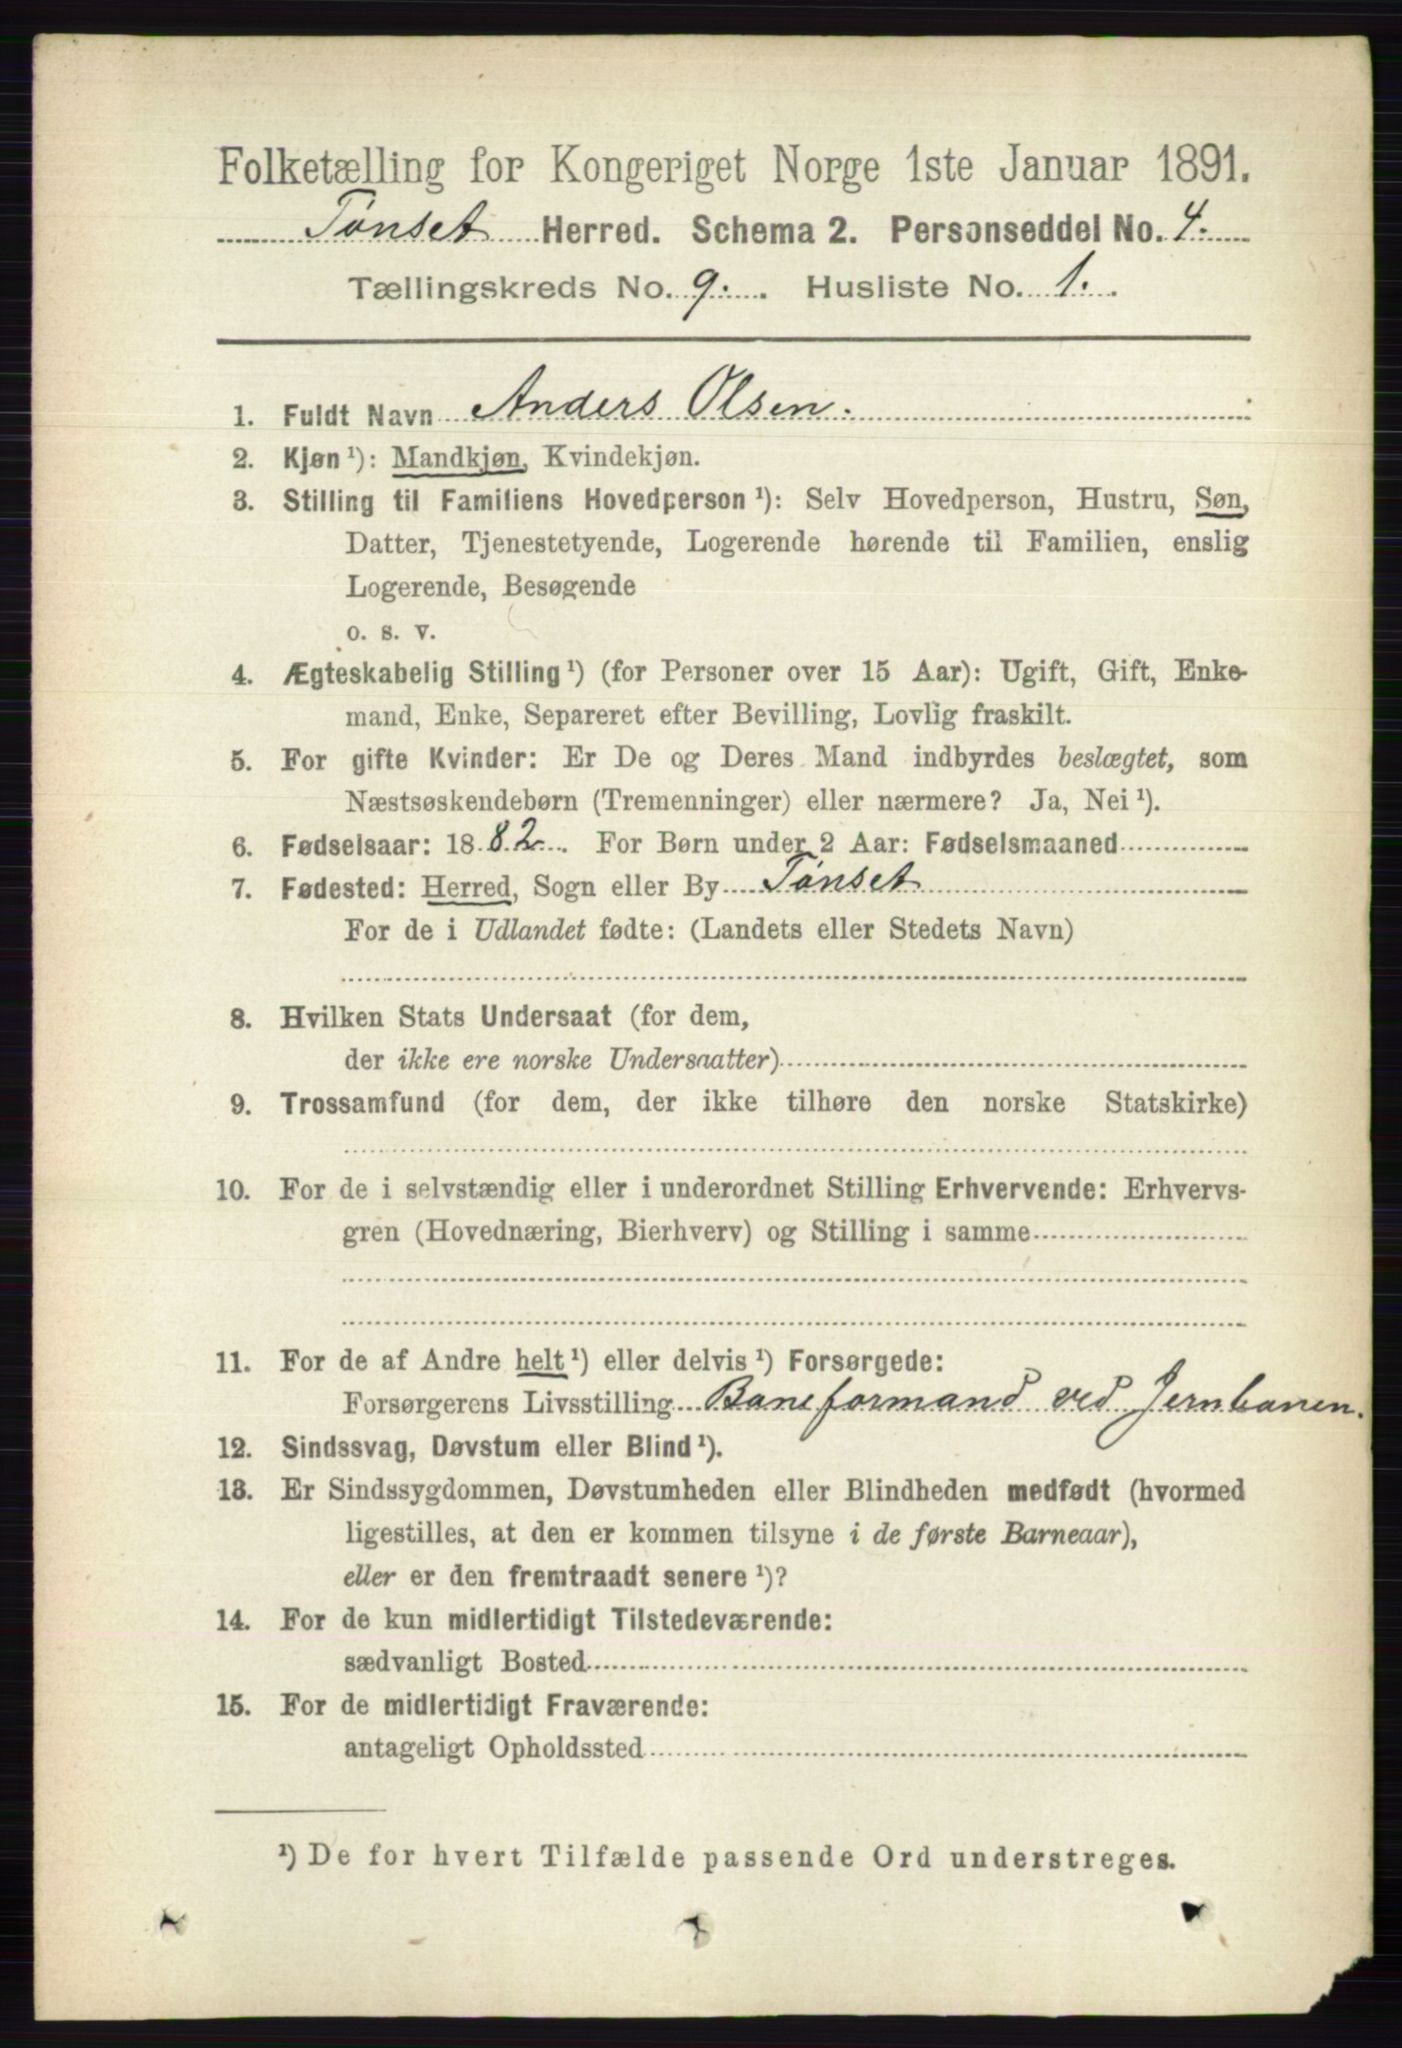 Folketælling for Kongeriget Norge 1ste Januar 1891.
Tønset Herred. Schema 2. Personseddel No. 4.
Tællingskreds No. 9. Husliste No. 1.
1. Fuldt Navn Anders Olsen.
2. Kjøn ¹): Mandkjøn, Kvindekjøn.
3. Stilling til Familiens Hovedperson ¹): Selv Hovedperson, Hustru, Søn,
Datter, Tjenestetyende, Logerende hørende til Familien, enslig
Logerende, Besøgende
o. s. v.
4. Ægteskabelig Stilling ¹) (for Personer over 15 Aar): Ugift, Gift, Enke-
mand, Enke, Separeret efter Bevilling, Lovlig fraskilt.
5. For gifte Kvinder: Er De og Deres Mand indbyrdes beslægtet, som
Næstsøskendebørn (Tremenninger) eller nærmere? Ja, Nei ¹).
6. Fødselsaar: 1882. For Børn under 2 Aar: Fødselsmaaned
7. Fødested: Herred, Sogn eller By Tønset
For de i Udlandet fødte: (Landets eller Stedets Navn)
8. Hvilken Stats Undersaat (for dem,
der ikke ere norske Undersaatter)
9. Trossamfund (for dem, der ikke tilhøre den norske Statskirke)
10. For de i selvstændig eller i underordnet Stilling Erhvervende: Erhvervs-
gren (Hovednæring, Bierhverv) og Stilling i samme
11. For de af Andre helt ¹) eller delvis ¹) Forsørgede:
Forsørgerens Livsstilling Baneformand ved Jernbanen.
12. Sindssvag, Døvstum eller Blind ¹).
13. Er Sindssygdommen, Døvstumheden eller Blindheden medfødt (hvormed
ligestilles, at den er kommen tilsyne i de første Barneaar),
eller er den fremtraadt senere ¹)?
14. For de kun midlertidigt Tilstedeværende:
sædvanligt Bosted
15. For de midlertidigt Fraværende:
antageligt Opholdssted
¹) De for hvert Tilfælde passende Ord understreges.